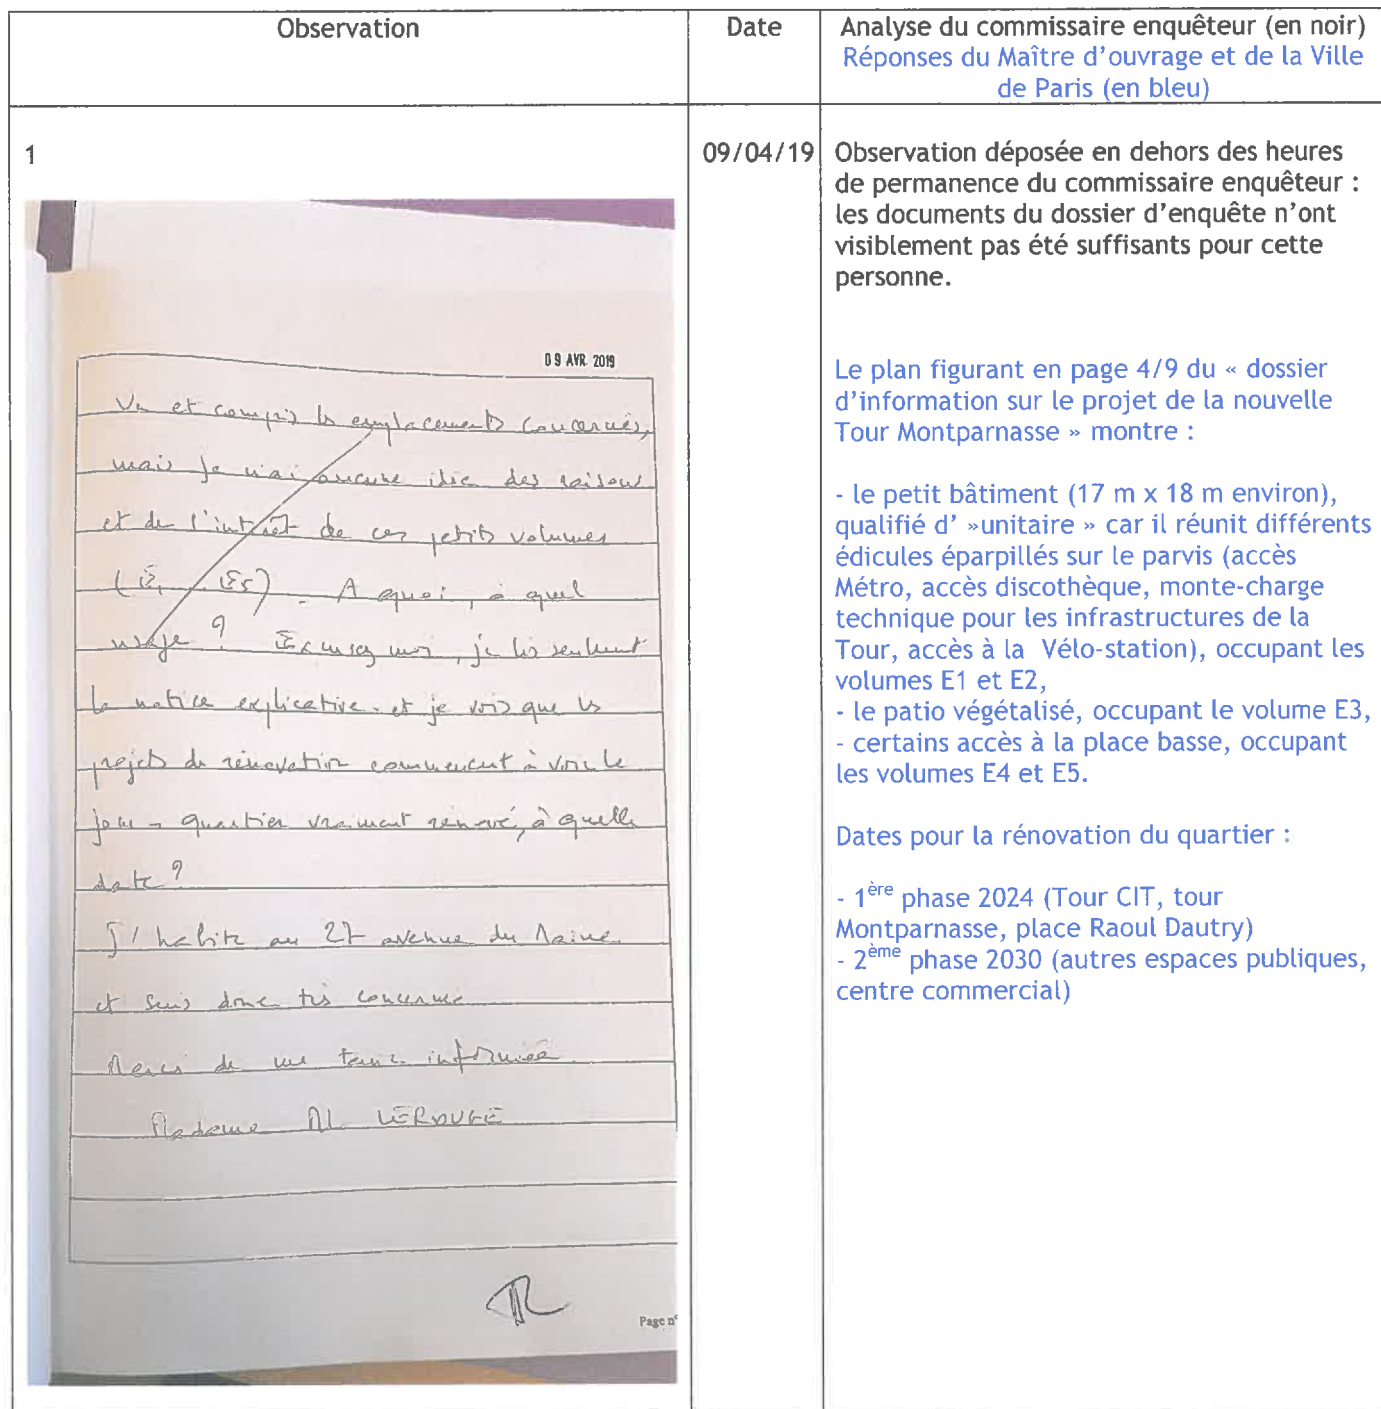 Observation
Date
Analyse du commissaire enquêteur (en noir)
Réponses du Maître d'ouvrage et de la Ville
de Paris (en bleu)
1
09 AVR. 2019
Vu et compris les emplacements concernés,
mais je n'ai aucune idée des raisons
et de l'intérêt de ces petits volumes
(E1 E5). A quoi, à quel
usage ? Excusez moi, je lis seulement
la notice explicative. et je vois que les
projets de rénovation commencent à voir le
jour - quartier vraiment rénové, à quelle
date ?
J'habite au 27 avenue du Maine
et suis donc très concernée
Merci de me tenir informée
Madame ML LEROUGE
Page n°
09/04/19
Observation déposée en dehors des heures
de permanence du commissaire enquêteur :
les documents du dossier d'enquête n'ont
visiblement pas été suffisants pour cette
personne.
Le plan figurant en page 4/9 du « dossier
d'information sur le projet de la nouvelle
Tour Montparnasse » montre :
- le petit bâtiment (17 m x 18 m environ),
qualifié d' »unitaire » car il réunit différents
édicules éparpillés sur le parvis (accès
Métro, accès discothèque, monte-charge
technique pour les infrastructures de la
Tour, accès à la Vélo-station), occupant les
volumes E1 et E2,
- le patio végétalisé, occupant le volume E3,
- certains accès à la place basse, occupant
les volumes E4 et E5.
Dates pour la rénovation du quartier :
- 1ère phase 2024 (Tour CIT, tour
Montparnasse, place Raoul Dautry)
- 2ème phase 2030 (autres espaces publiques,
centre commercial)